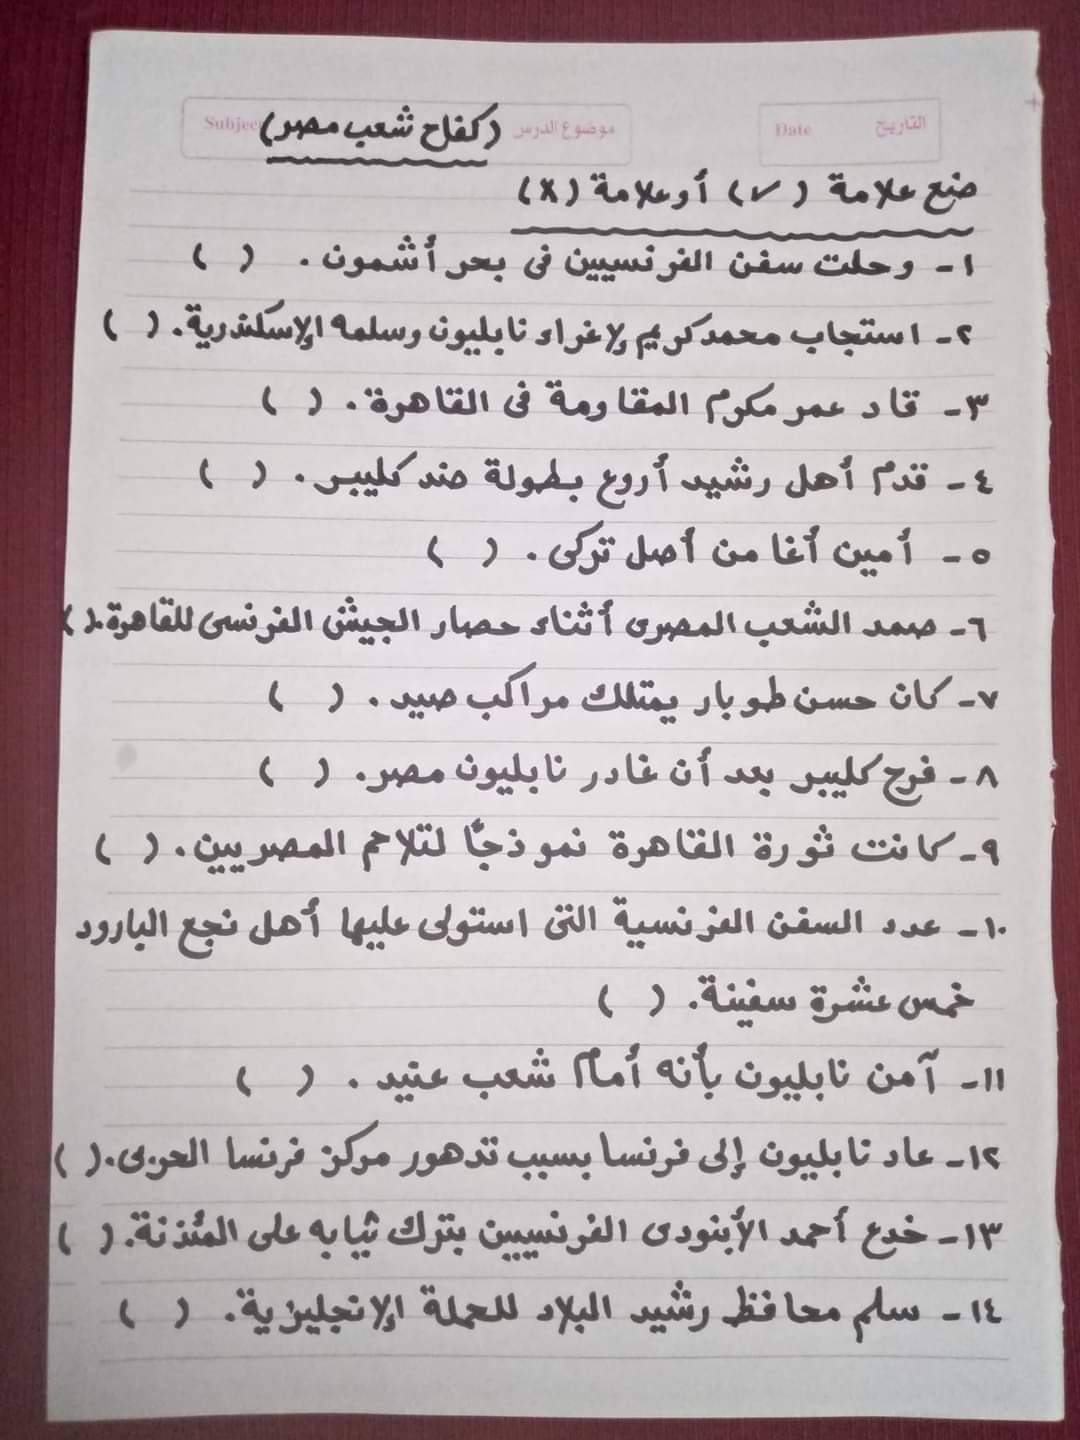 Subject (كفاح شعب مصر) موضوع الدرس
Date التاريخ
ضع علامة (✓) أو علامة (X)
١- وحلت سفن الفرنسيين فى بحر أشمون. ( )
٢- استجاب محمد كريم لإغراء نابليون وسلمه الإسكندرية. ( )
٣- قاد عمر مكرم المقاومة فى القاهرة. ( )
٤- قدم أهل رشيد أروع بطولة ضد كليبر. ( )
٥- أمين أغا من أصل تركى. ( )
٦- صمد الشعب المصرى أثناء حصار الجيش الفرنسى للقاهرة. ( )
٧- كان حسن طوبار يمتلك مراكب صيد. ( )
٨- فرح كليبر بعد أن غادر نابليون مصر. ( )
٩- كانت ثورة القاهرة نموذجًا لتلاحم المصريين. ( )
١٠- عدد السفن الفرنسية التى استولى عليها أهل نجع البارود
خمس عشرة سفينة. ( )
١١- آمن نابليون بأنه أمام شعب عنيد. ( )
١٢- عاد نابليون إلى فرنسا بسبب تدهور مركز فرنسا الحربى. ( )
١٣- خدع أحمد الأبنودى الفرنسيين بترك ثيابه على المئذنة. ( )
١٤- سلم محافظ رشيد البلاد للحملة الإنجليزية. ( )